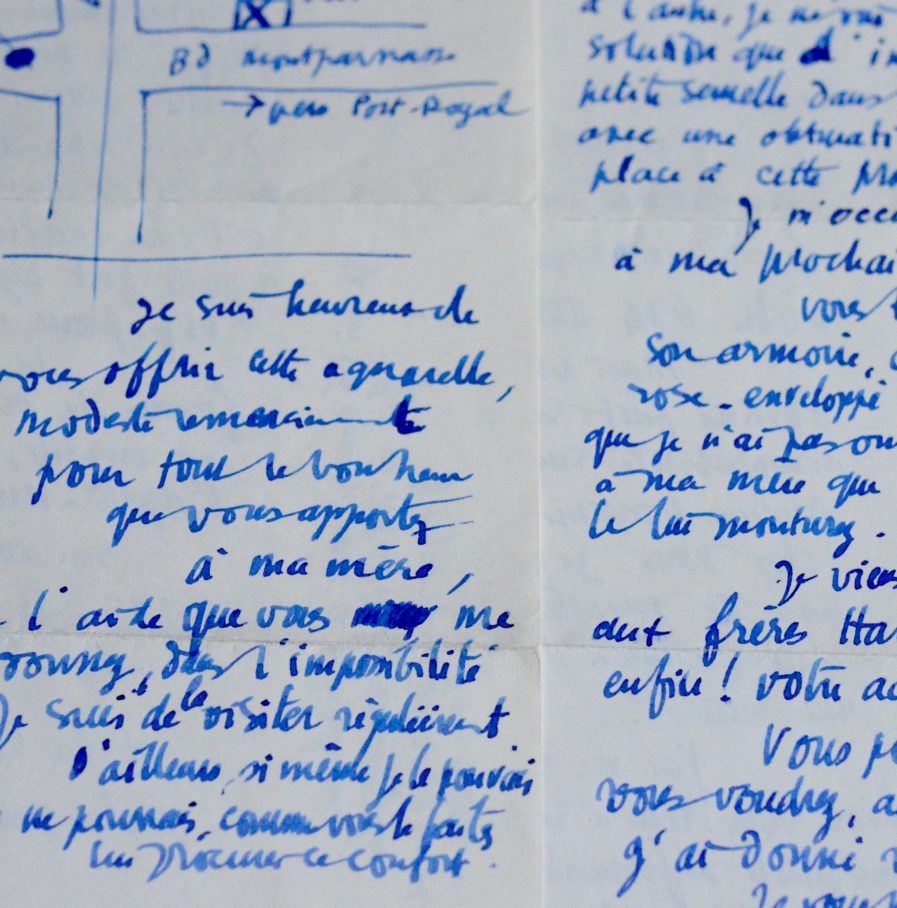 Bd Montparnasse
→ vers Port-Royal
Je suis heureux de
vous offrir cette aquarelle,
modeste remerciement
pour tout le bonheur
que vous apportez
à ma mère,
l'aide que vous me
donnez, dans l'impossibilité
Je suis de la visiter régulièrement
D'ailleurs, si même je le pouvais
ne pourrais, comme vous le faites
lui procurer ce confort.
à l'autre, je ne
solution que d'
petite semelle dans
avec une
place à cette
Je m'occ
à ma prochai
vous
son armoire,
rose. enveloppé
que je n'ai pas
à ma mère que
le lui montrerez.
Je viens
aux frères Ha
enfin! votre
Vous
vous voudrez, a
j'ai donné
Je vous